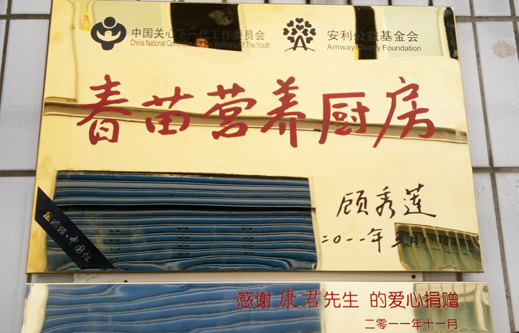 中国关心下一代工作委员会
China National Committee for the Wellbeing of The Youth
安利公益基金会
Amway Charity Foundation
春苗营养厨房
顾秀莲
二〇一一年
感谢 康君先生 的爱心捐赠
二零一一年十一月